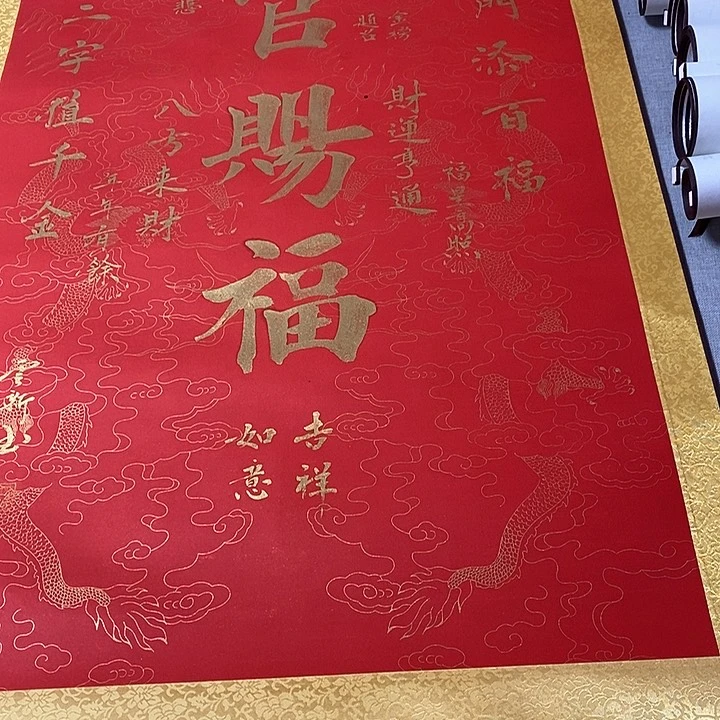 門添百福
福星高照
財運亨通
金榜
題名
官賜福
吉祥
如意
八方来財
五年有餘
二字值千金